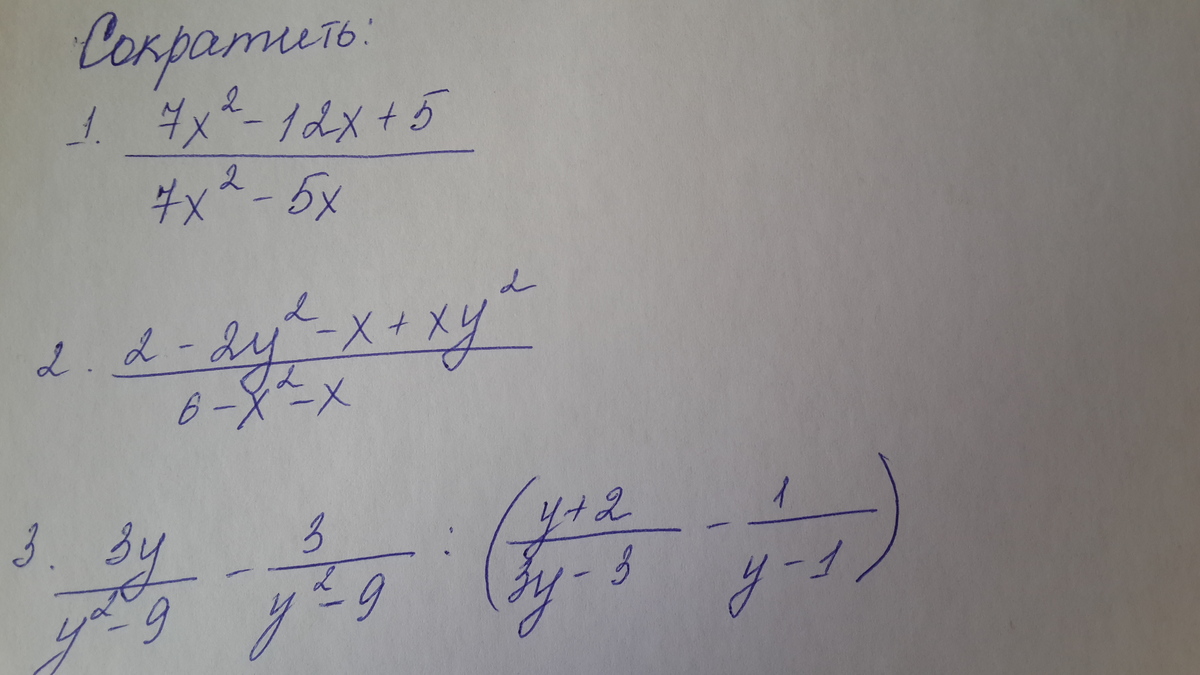 Сократить:
1. (7x² - 12x + 5) / (7x² - 5x)
2. (2 - 2y² - x + xy²) / (6 - x² - x)
3. 3y / (y² - 9) - 3 / (y² - 9) : ((y + 2) / (3y - 3) - 1 / (y - 1))